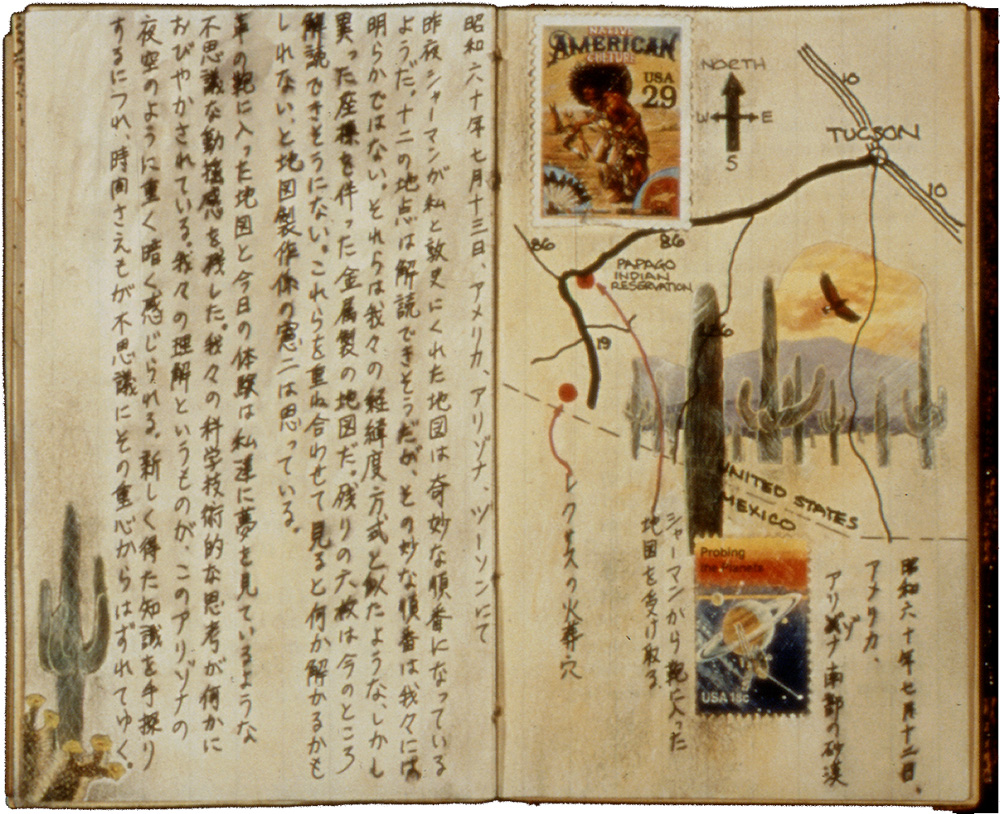 NATIVE
AMERICAN
CULTURE
USA
29
NORTH
W E
S
10
TUCSON
10
86
86
PAPAGO
INDIAN
RESERVATION
19
UNITED STATES
MEXICO
Probing
the Planets
USA 18c
昭和六十年七月十二日、
アメリカ、
アリゾナ南部の砂漠
シャーマンから鞄に入った
地図を受け取る
の火葬穴
昭和六十年七月十三日、アメリカ、アリゾナ、ヅーソンにて
昨夜シャーマンが私と敦史にくれた地図は奇妙な順番になっている
ようだ。十二の地点は解読できそうだが、その妙な順番は我々には
明らかではない。それらは我々の経緯度方式と似たような、しかし
異った座標を伴った金属製の地図だ。残りの六枚は今のところ
解読できそうにない。これらを重ね合わせて見ると何か解かるかも
しれない、と地図製作係の憲二は思っている。
革の鞄に入った地図と今日の体験は私達に夢を見ているような
不思議な動揺感を残した。我々の科学技術的な思考が何かに
おびやかされている。我々の理解というものが、このアリゾナの
夜空のように重く暗く感じられる。新しく得た知識を手探り
するにつれ、時間さえもが不思議にその重心からはずれてゆく。